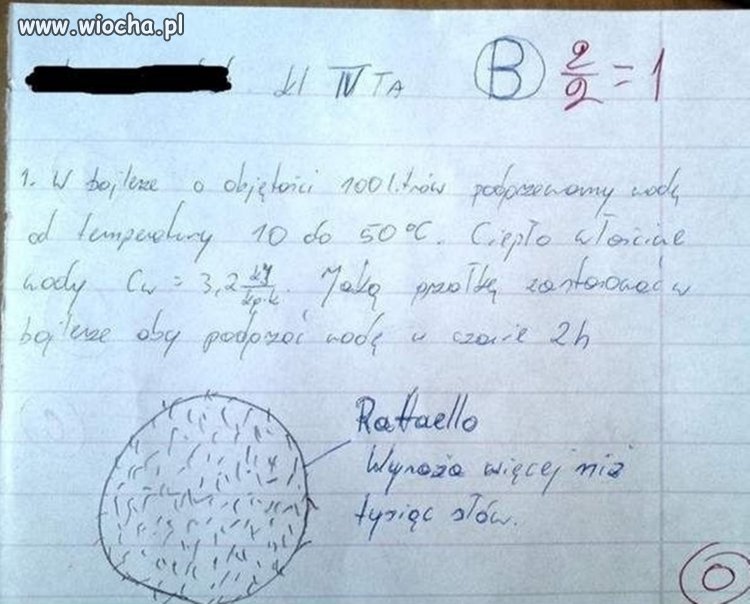 www.wiocha.pl
kl IV TA B 2/2 = 1
1. W bojlerze o objętości 100 litrów podgrzewamy wodę
od temperatury 10 do 50°C. Ciepło właściwe
wody Cw = 3,2 kJ/kg·K. Jaką grzałkę zastosować w
bojlerze aby podgrzać wodę w czasie 2h
Raffaello
Wyraża więcej niż
tysiąc słów.
0